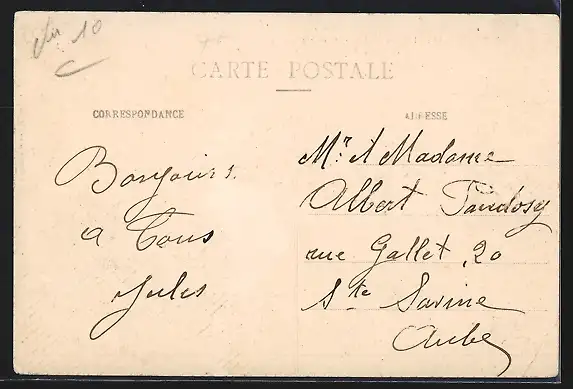 10
CARTE POSTALE
CORRESPONDANCE
ADRESSE
Bonjours
a Tous
Jules
Mr. et Madame
Albert
rue Gallet, 20
Ste Savine
Aube